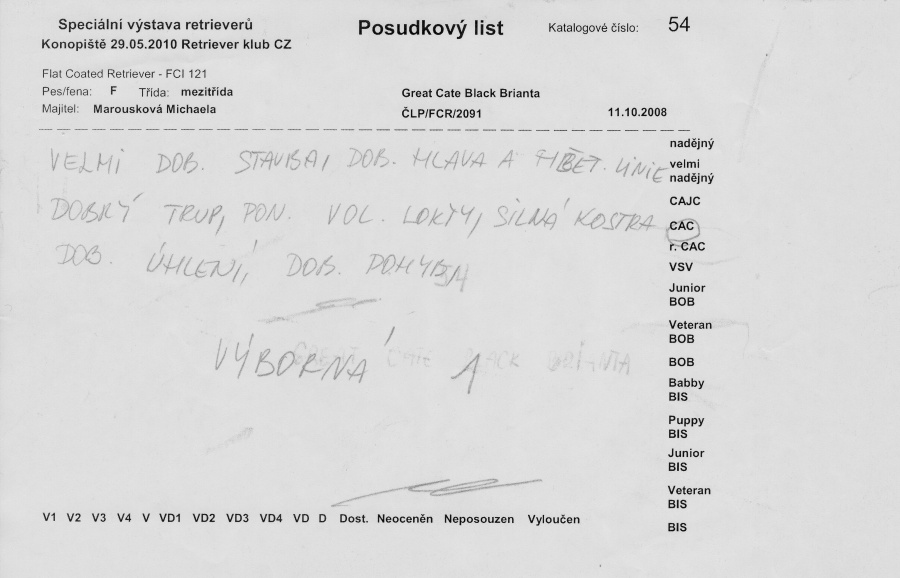 Speciální výstava retrieverů
Konopiště 29.05.2010 Retriever klub CZ
Posudkový list
Katalogové číslo: 54
Flat Coated Retriever - FCI 121
Pes/fena: F Třída: mezitřída
Majitel: Marousková Michaela
Great Cate Black Brianta
ČLP/FCR/2091 11.10.2008
VELMI DOB. STAVBA, DOB. HLAVA A HŘBET. LINIE
DOBRÝ TRUP, PON. VOL. LOKTY, SILNÁ KOSTRA
DOB. ÚHLENÍ, DOB. POHYB
VÝBORNÁ 1
nadějný
velmi
nadějný
CAJC
CAC
r. CAC
VSV
Junior
BOB
Veteran
BOB
BOB
Babby
BIS
Puppy
BIS
Junior
BIS
Veteran
BIS
BIS
V1 V2 V3 V4 V VD1 VD2 VD3 VD4 VD D Dost. Neoceněn Neposouzen Vyloučen